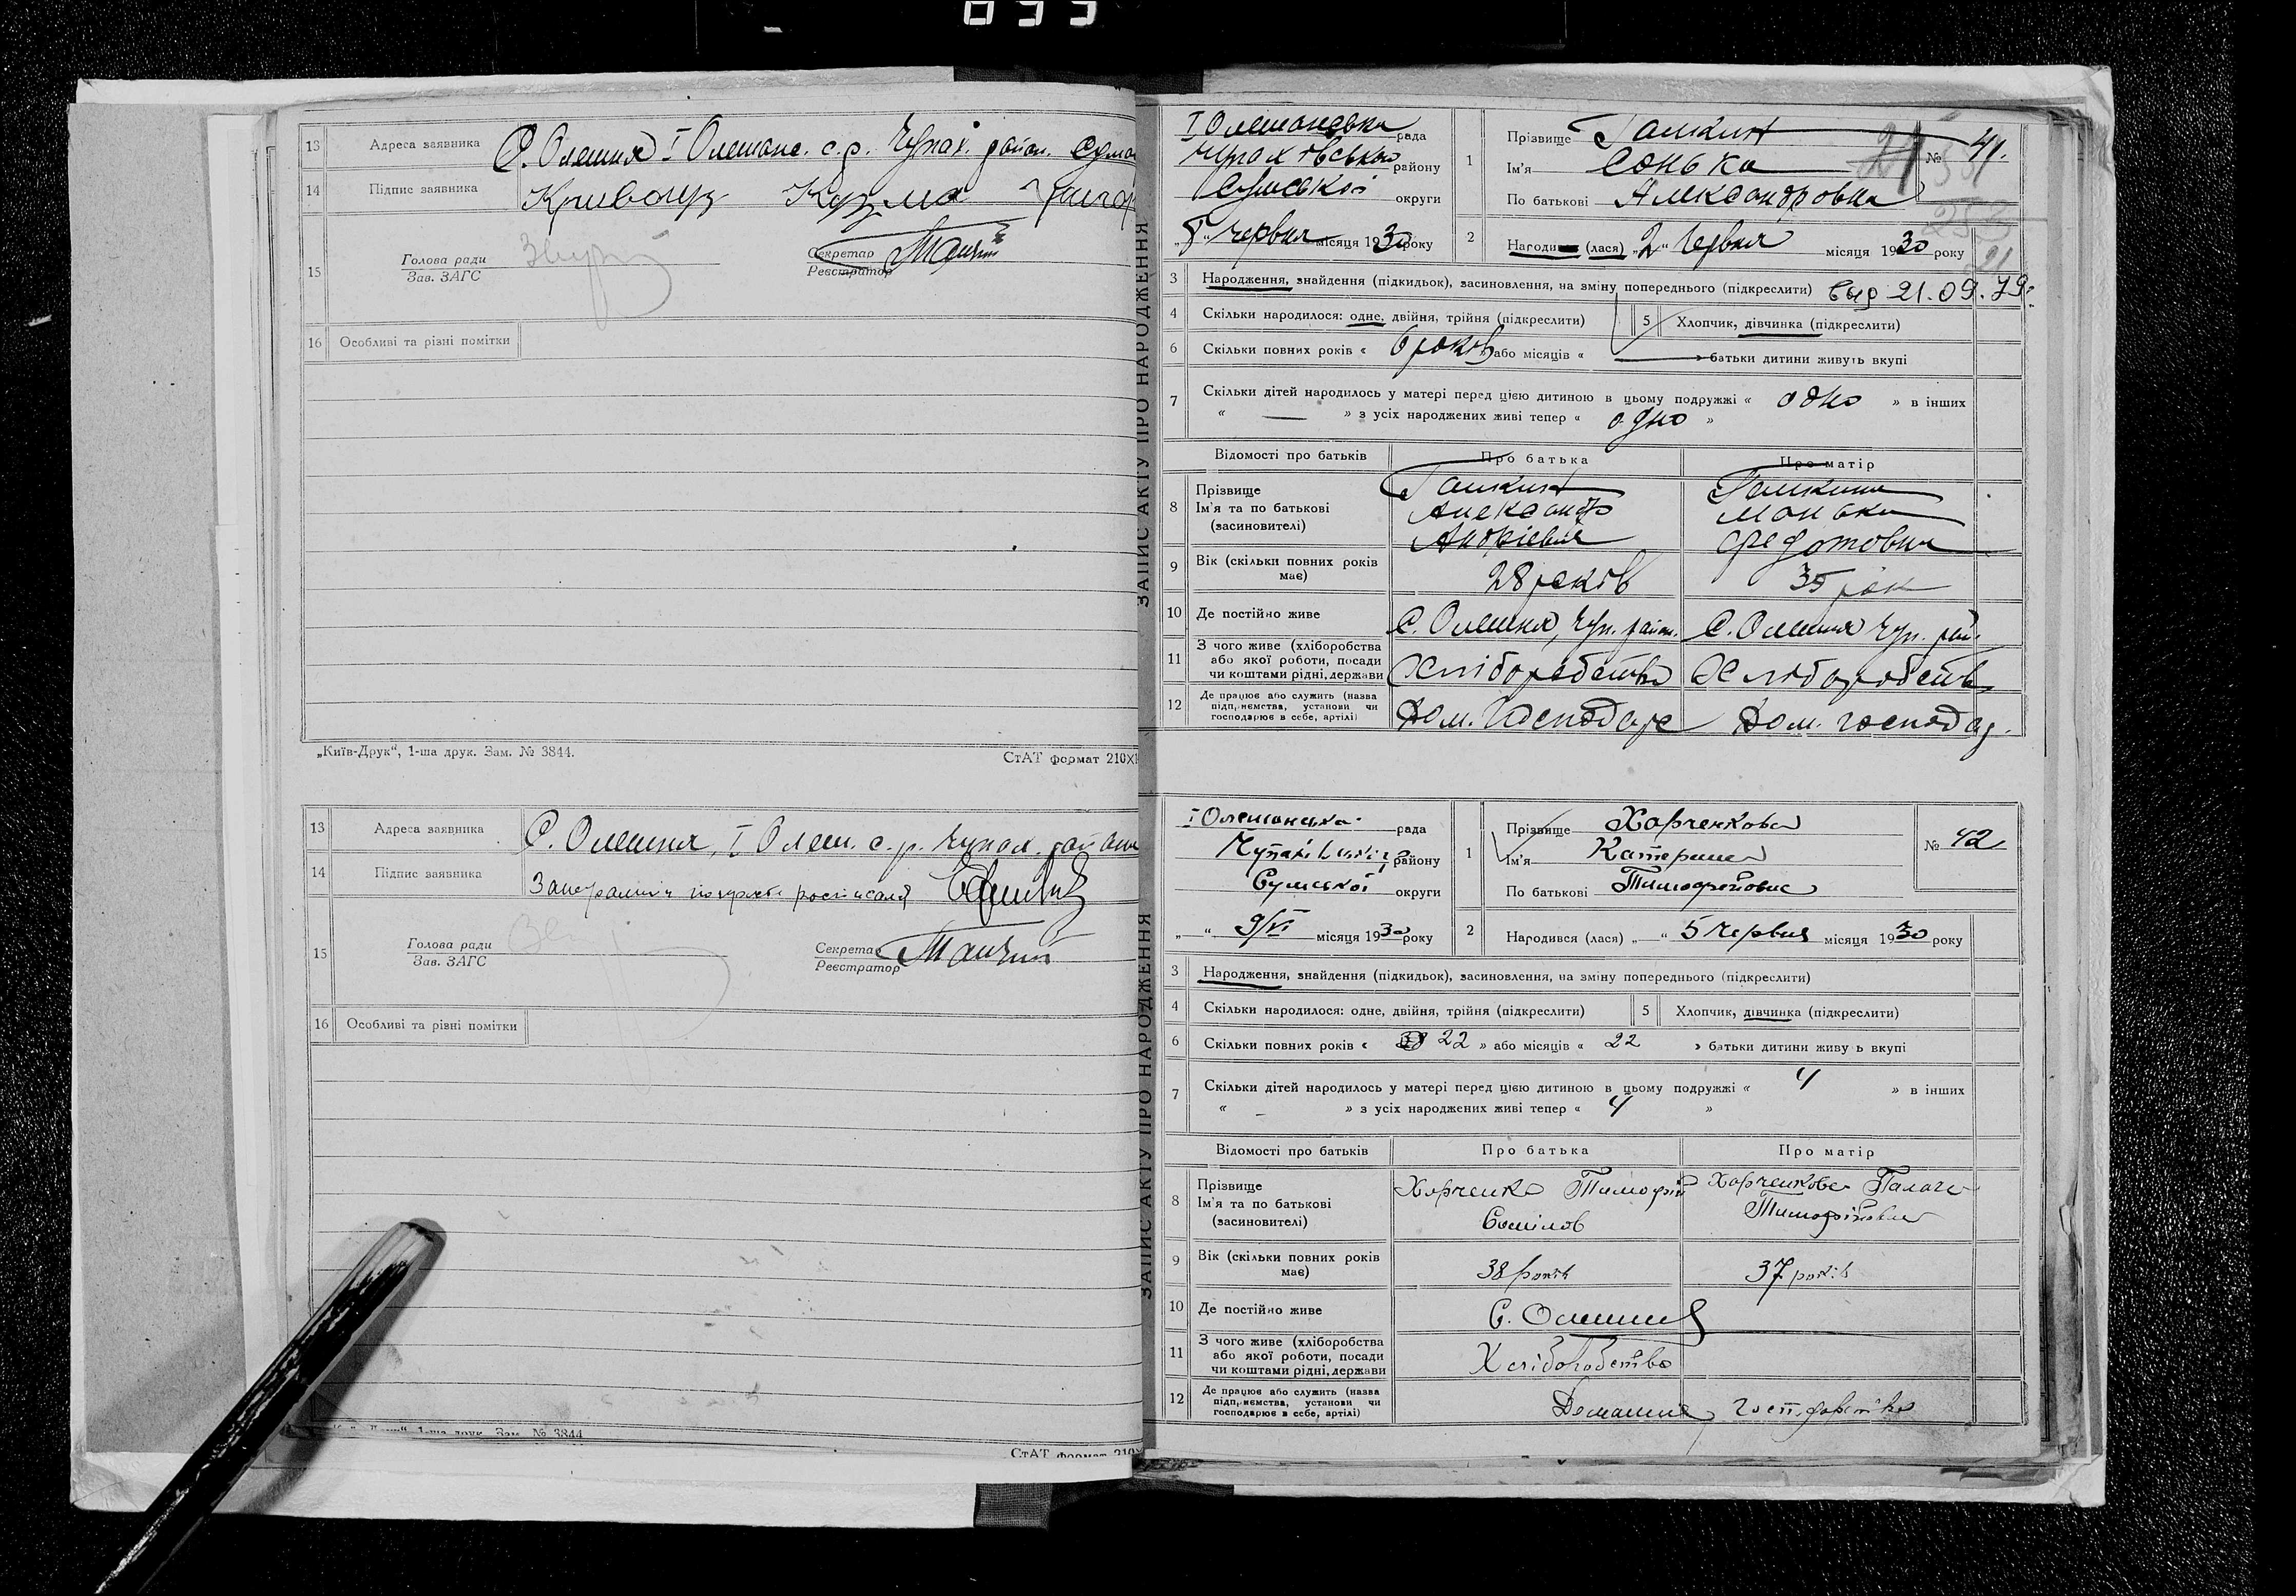 13 Адреса заявника С. Олешня І Олешанс. с.р. Чупах. район.
14 Підпис заявника Кузма
15 Голова ради
Зав. ЗАГС
Секретар
Реєстратор
16 Особливі та різні помітки
„Київ-Друк“, 1-ша друк. Зам. № 3844.
СтАТ формат 210X
13 Адреса заявника С. Олешня, І Олеш. с.р. Чупах. району
14 Підпис заявника
15 Голова ради
Зав. ЗАГС
Секретар
Реєстратор
16 Особливі та різні помітки
1-ша друк. Зам. № 3844
СтАТ формат 210X
ЗАПИС АКТУ ПРО НАРОДЖЕННЯ
І Олешанська рада
Чупахівського району
Сумської округи
червня місяця 1930 року
1 Прізвище
Ім'я Сонька
По батькові Александровна
№ 41.
2 Народи (лася) „2“ Червня місяця 1930 року
3 Народження, знайдення (підкидьок), засиновлення, на зміну попереднього (підкреслити) 21.09.79
4 Скільки народилося: одне, двійня, трійня (підкреслити)
5 Хлопчик, дівчинка (підкреслити)
6 Скільки повних років « 6 років » або місяців « — » батьки дитини живуть вкупі
7 Скільки дітей народилось у матері перед цією дитиною в цьому подружжі « одно » в інших
« — » з усіх народжених живі тепер « одно »
Відомості про батьків Про батька Про матір
8 Прізвище
Ім'я та по батькові Александр Манька
(засиновителі) Федотовна
9 Вік (скільки повних років має) 28 років 35 рок
10 Де постійно живе С. Олешня, Чуп. район. С. Олешня Чуп. рай.
11 З чого живе (хліборобства
або якої роботи, посади
чи коштами рідні, держави Хліборобство Хліборобств
12 Де працює або служить (назва
підприємства, установи чи
господарює в себе, артілі) Дом. господар Дом. господар.
ЗАПИС АКТУ ПРО НАРОДЖЕННЯ
І Олешанська рада
району
Сумської округи
„ “ 9/VI місяця 1930 року
1 Прізвище Харченкова
Ім'я Катерина
По батькові Тимофійовна
№ 42
2 Народився (лася) „ “ 5 червня місяця 1930 року
3 Народження, знайдення (підкидьок), засиновлення, на зміну попереднього (підкреслити)
4 Скільки народилося: одне, двійня, трійня (підкреслити)
5 Хлопчик, дівчинка (підкреслити)
6 Скільки повних років « 22 » або місяців « 22 » батьки дитини живу ь вкупі
7 Скільки дітей народилось у матері перед цією дитиною в цьому подружжі « 4 » в інших
« – » з усіх народжених живі тепер « 4 »
Відомості про батьків Про батька Про матір
8 Прізвище Харченко Тимофій Харченкова
Ім'я та по батькові Тимофійовна
(засиновителі)
9 Вік (скільки повних років має) 38 років 37 років
10 Де постійно живе С. Олешня
11 З чого живе (хліборобства
або якої роботи, посади
чи коштами рідні, держави Хліборобство
12 Де працює або служить (назва
підприємства, установи чи
господарює в себе, артілі) Домашнє господарство